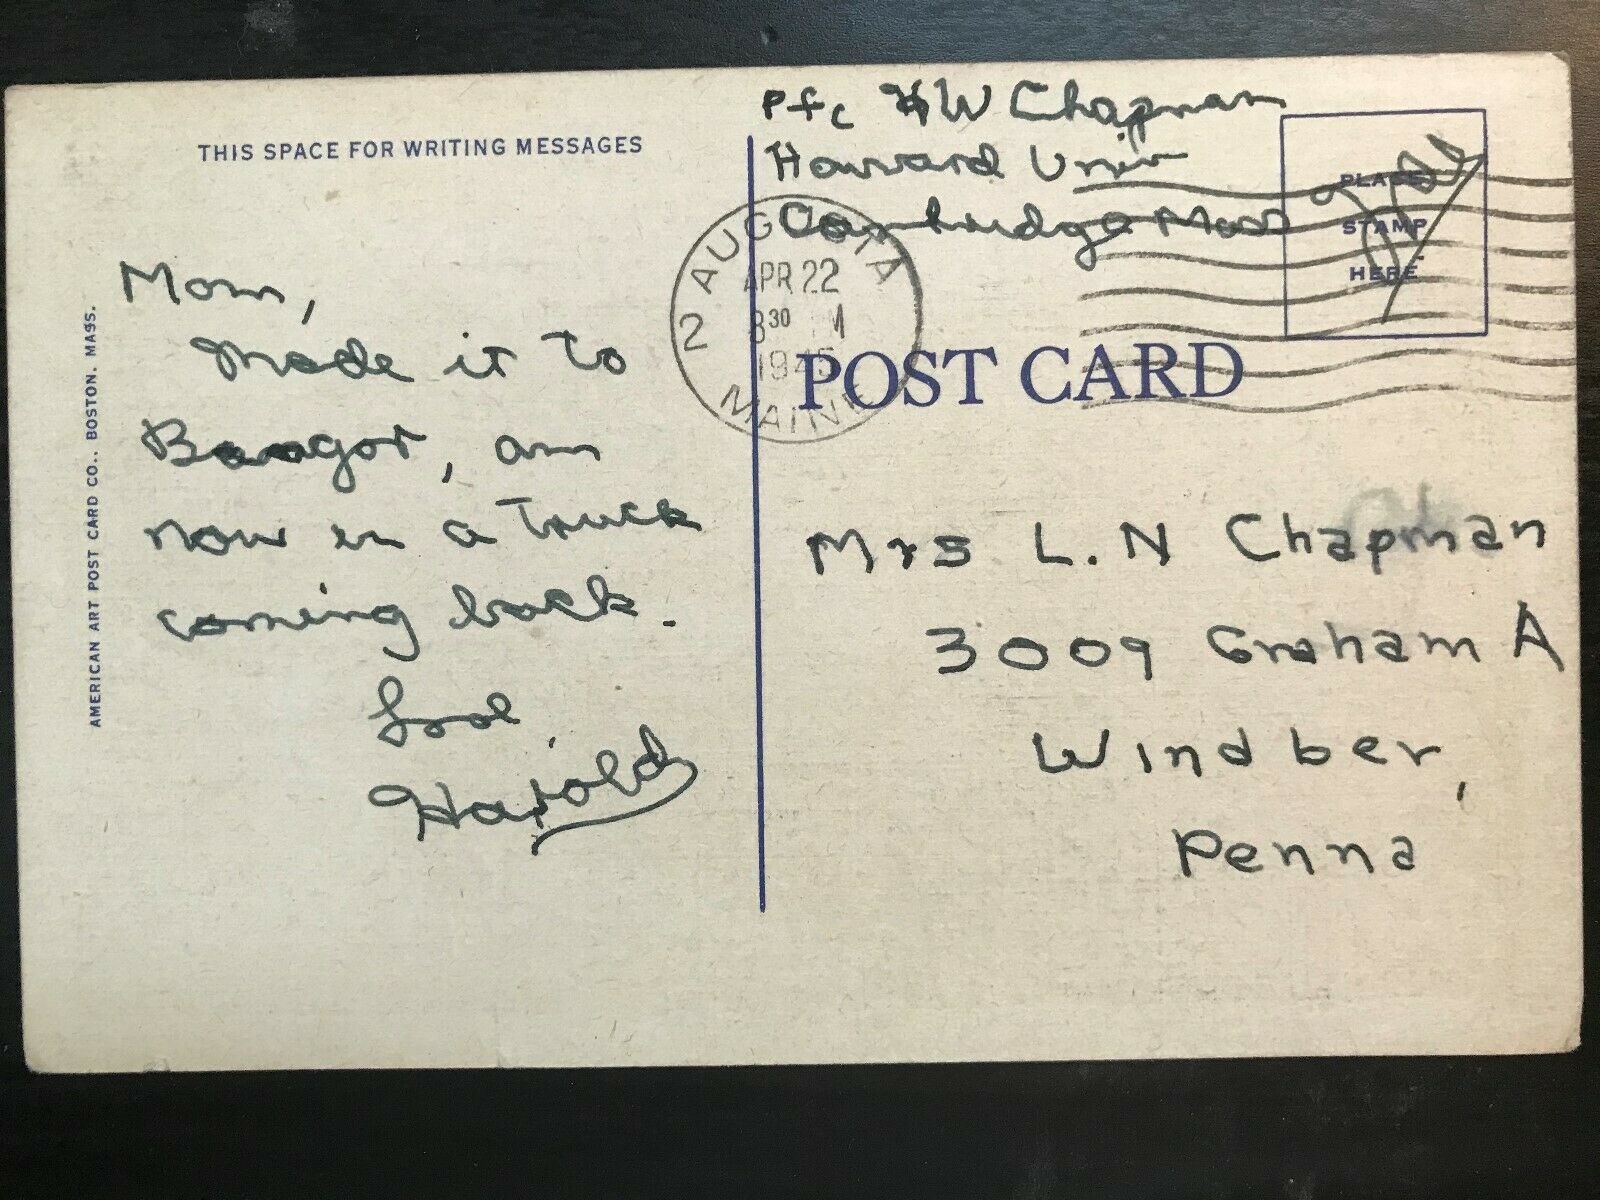 THIS SPACE FOR WRITING MESSAGES
AMERICAN ART POST CARD CO., BOSTON. MASS.
Mom,
Made it to
Bangor, am
now in a truck
coming back.
Love,
Harold
Pfc HW Chapman
Harvard Univ
Cambridge Mass
2 AUGUSTA
APR 22
1945
MAINE
PLACE
STAMP
HERE
POST CARD
Mrs L. N Chapman
3009 Graham A
Windber,
Penna